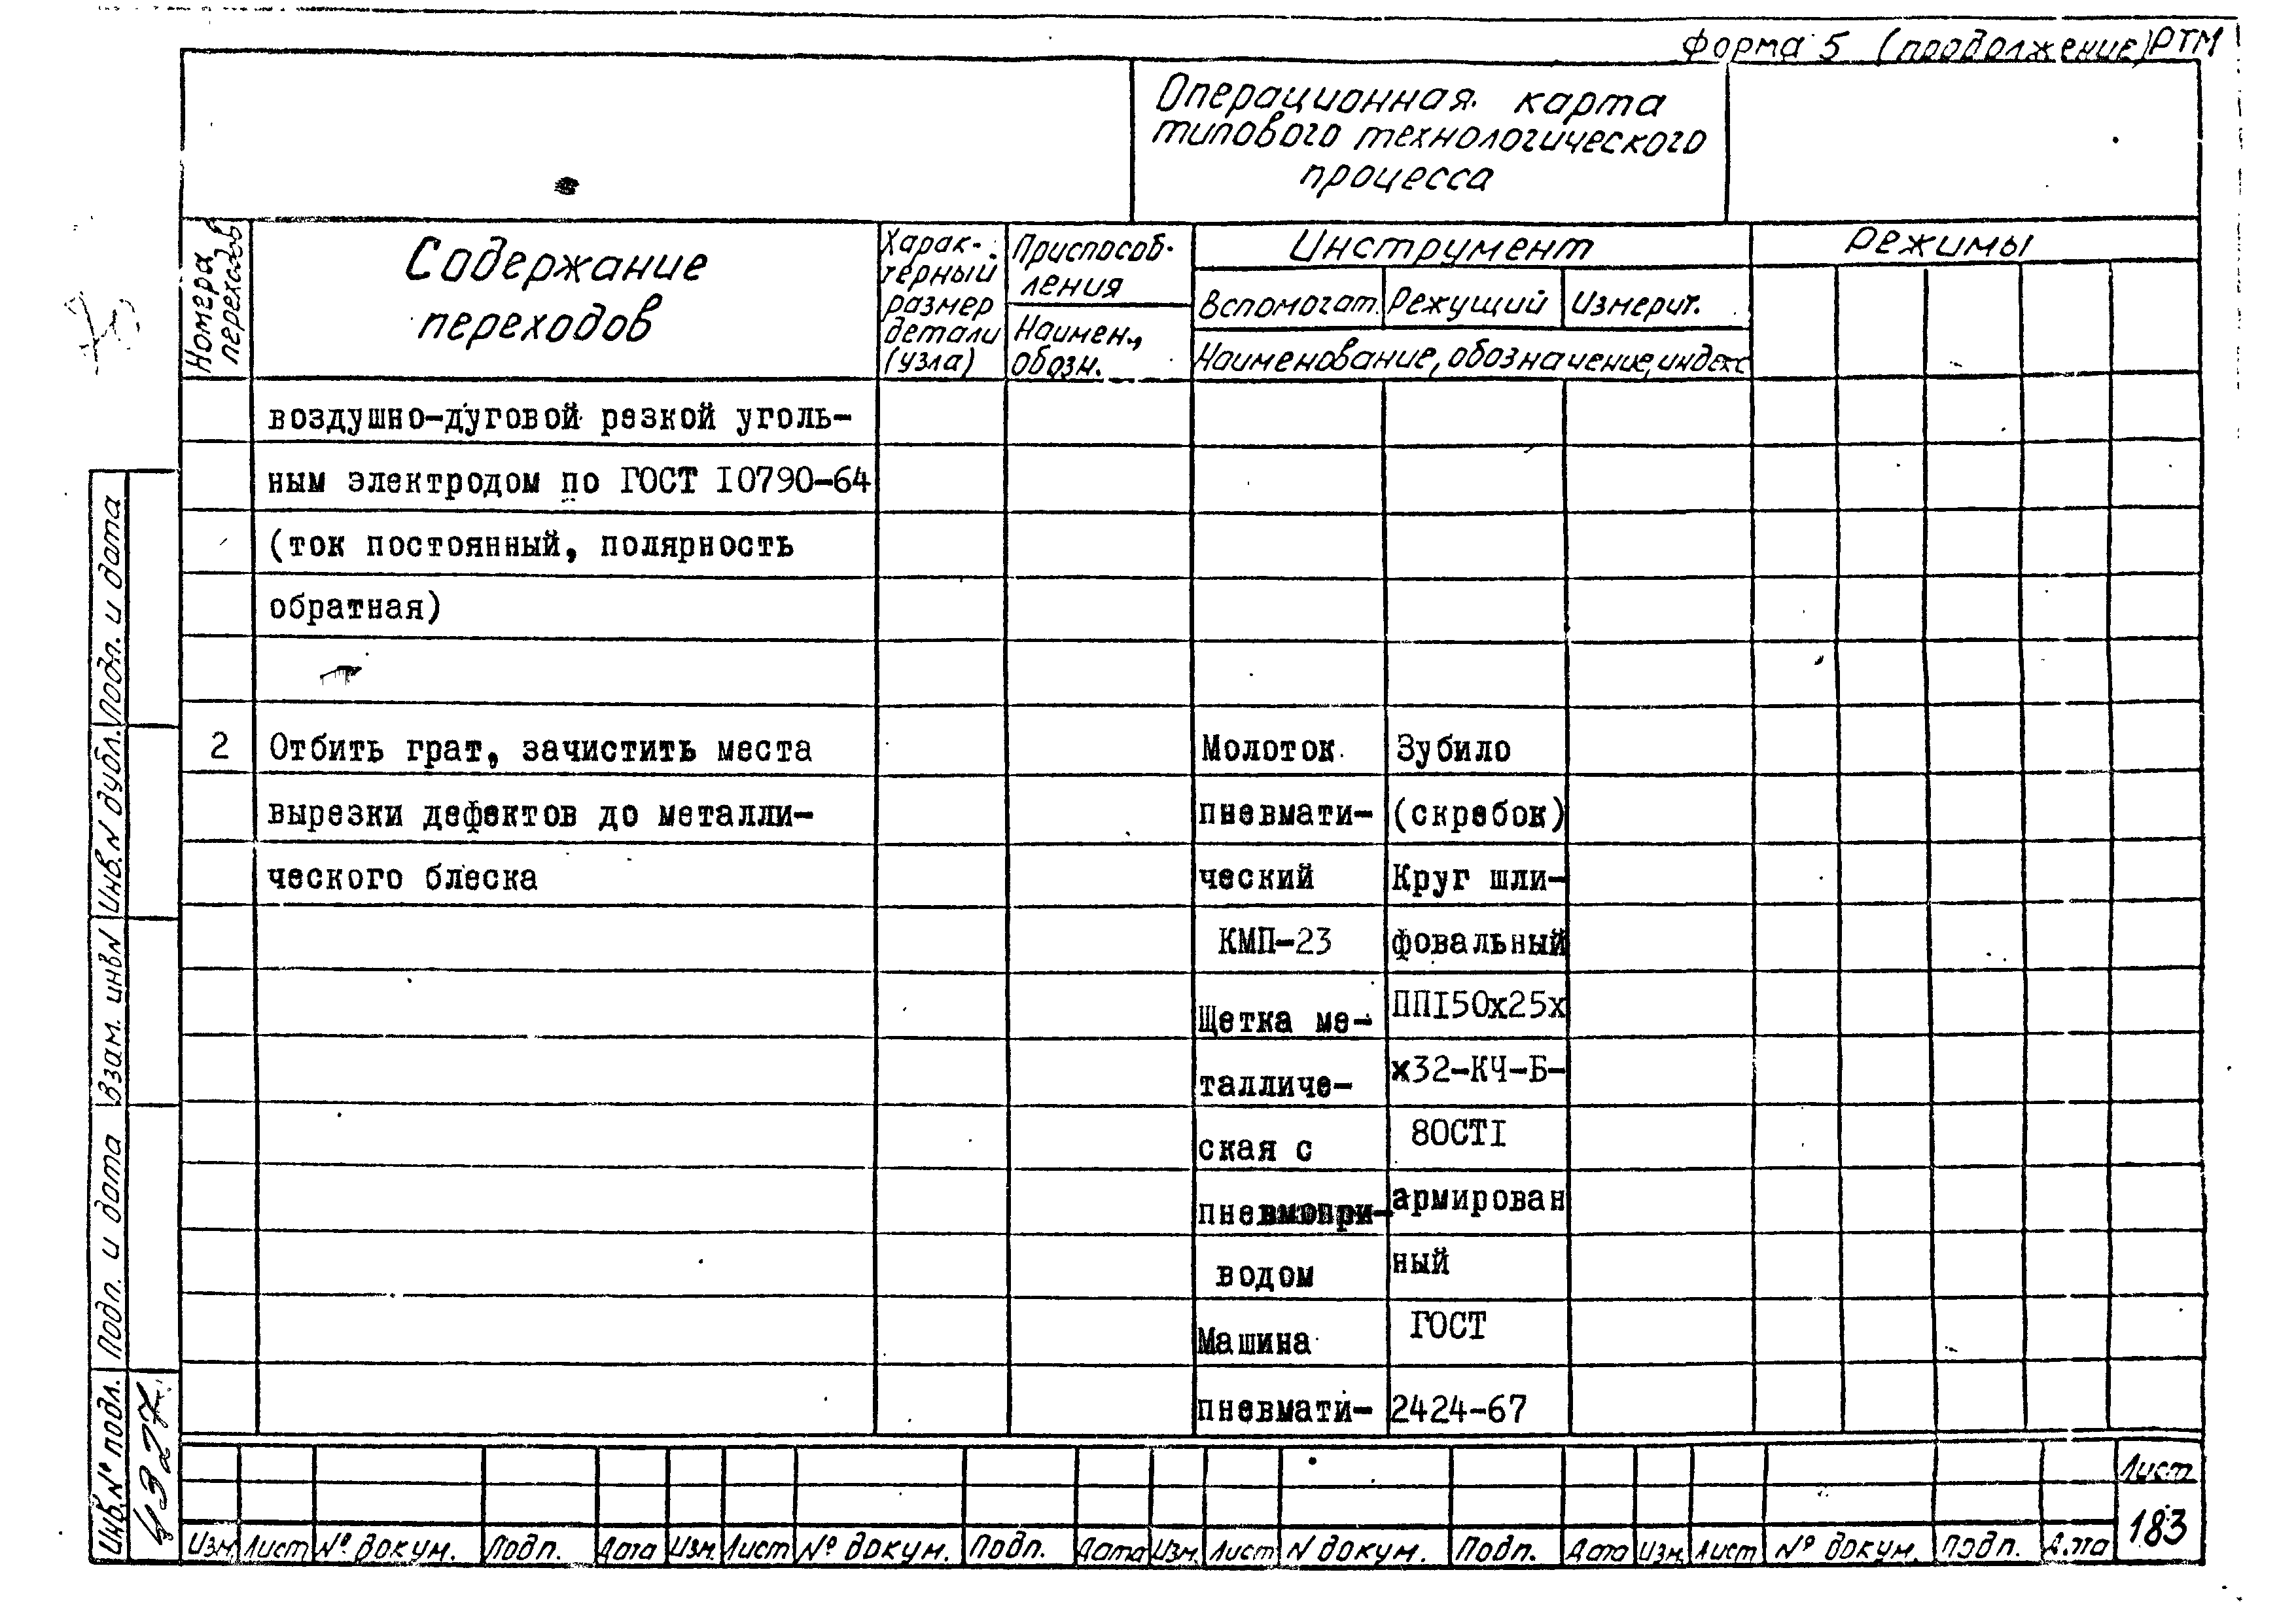 форма 5 (продолжение) РТМ
Операционная карта
типового технологического
процесса
Номера
переходов
Содержание
переходов
Харак-
терный
размер
детали
(узла)
Приспособ-
ления
Наимен.,
обозн.
Инструмент
Вспомогат. Режущий Измерит.
Наименование, обозначение, индекс
Режимы
воздушно-дуговой резкой уголь-
ным электродом по ГОСТ I0790-64
(ток постоянный, полярность
обратная)
2 Отбить грат, зачистить места
вырезки дефектов до металли-
ческого блеска
Молоток
пневмати-
ческий
КМП-23
Щетка ме-
талличе-
ская с
пневмопри-
водом
Машина
пневмати-
Зубило
(скребок)
Круг шли-
фовальный
ППI50х25х
х32-КЧ-Б-
80СТI
армирован
ный
ГОСТ
2424-67
Подп. и дата
Инв.N дубл.
Взам. инв N
Подп. и дата
Инв.N° подл.
4327
Изм Лист N° докум. Подп. Дата Изм. Лист N° докум. Подп. Дата Изм. Лист N докум. Подп. Дата Изм. Лист N° докум. Подп. Дата
Лист
183